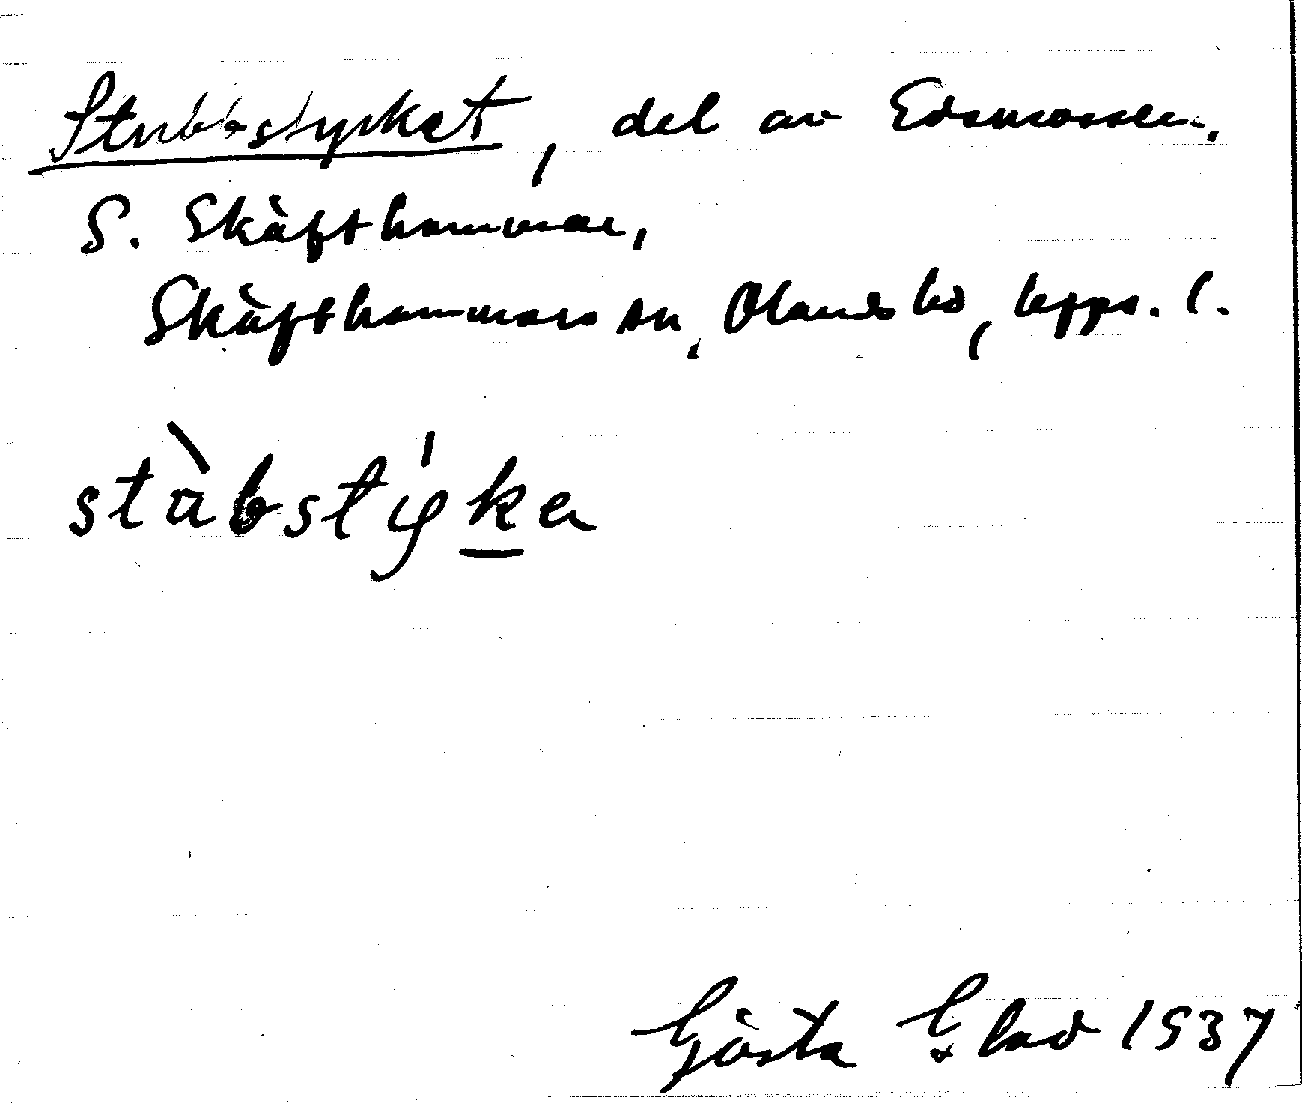 Stubbstycket, del av Edsmossen,
S. Skäfthammar,
Skäfthammars sn, Olands hd, Upps. l.
stùbstýka
Gösta Glad 1937